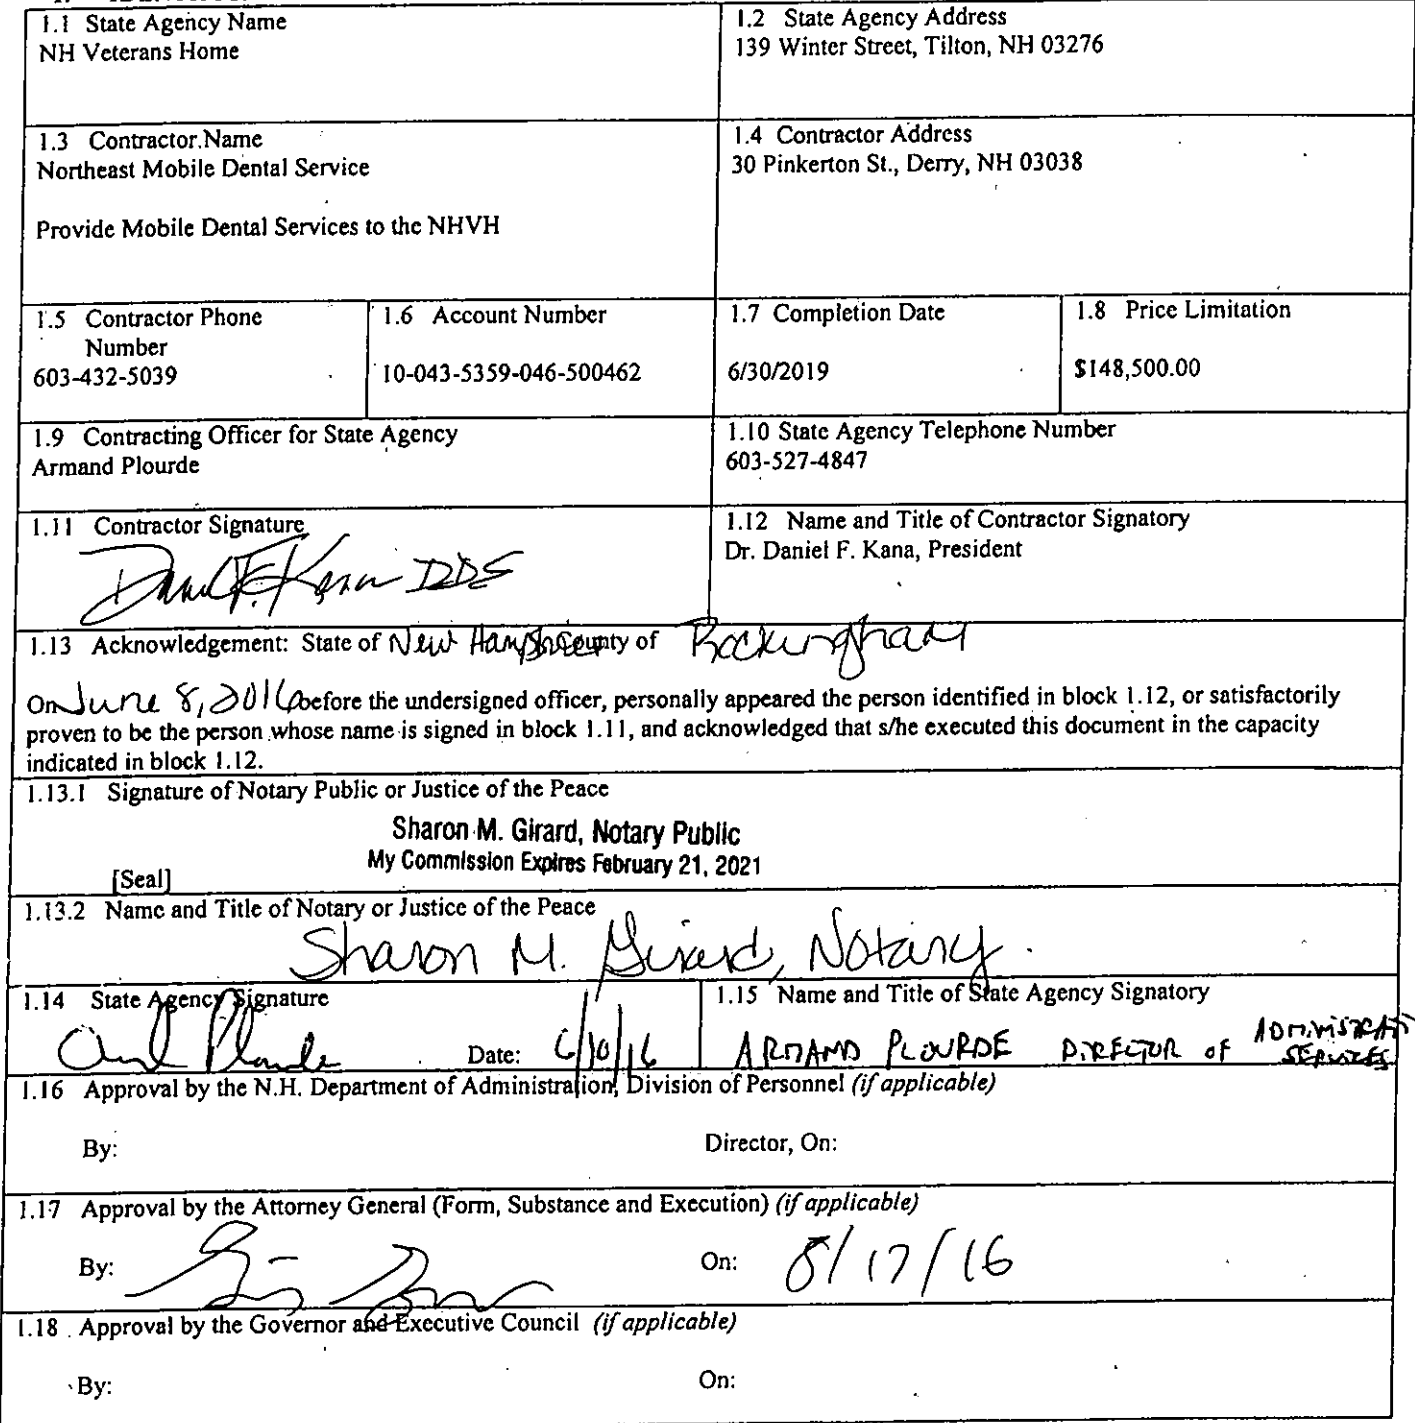 1.1 State Agency Name
NH Veterans Home
1.2 State Agency Address
139 Winter Street, Tilton, NH 03276
1.3 Contractor Name
Northeast Mobile Dental Service
Provide Mobile Dental Services to the NHVH
1.4 Contractor Address
30 Pinkerton St., Derry, NH 03038
1.5 Contractor Phone
Number
603-432-5039
1.6 Account Number
10-043-5359-046-500462
1.7 Completion Date
6/30/2019
1.8 Price Limitation
$148,500.00
1.9 Contracting Officer for State Agency
Armand Plourde
1.10 State Agency Telephone Number
603-527-4847
1.11 Contractor Signature
Daniel F. Kana DDS
1.12 Name and Title of Contractor Signatory
Dr. Daniel F. Kana, President
1.13 Acknowledgement: State of New Hampshire County of Rockingham
On June 8, 2016 before the undersigned officer, personally appeared the person identified in block 1.12, or satisfactorily
proven to be the person whose name is signed in block 1.11, and acknowledged that s/he executed this document in the capacity
indicated in block 1.12.
1.13.1 Signature of Notary Public or Justice of the Peace
Sharon M. Girard, Notary Public
My Commission Expires February 21, 2021
[Seal]
1.13.2 Name and Title of Notary or Justice of the Peace
Sharon M. Girard, Notary
1.14 State Agency Signature
Date: 6/10/16
1.15 Name and Title of State Agency Signatory
ARMAND PLOURDE DIRECTOR OF
SERVICES
1.16 Approval by the N.H. Department of Administration, Division of Personnel (if applicable)
By:
Director, On:
1.17 Approval by the Attorney General (Form, Substance and Execution) (if applicable)
By:
On: 8/17/16
1.18 Approval by the Governor and Executive Council (if applicable)
By:
On: